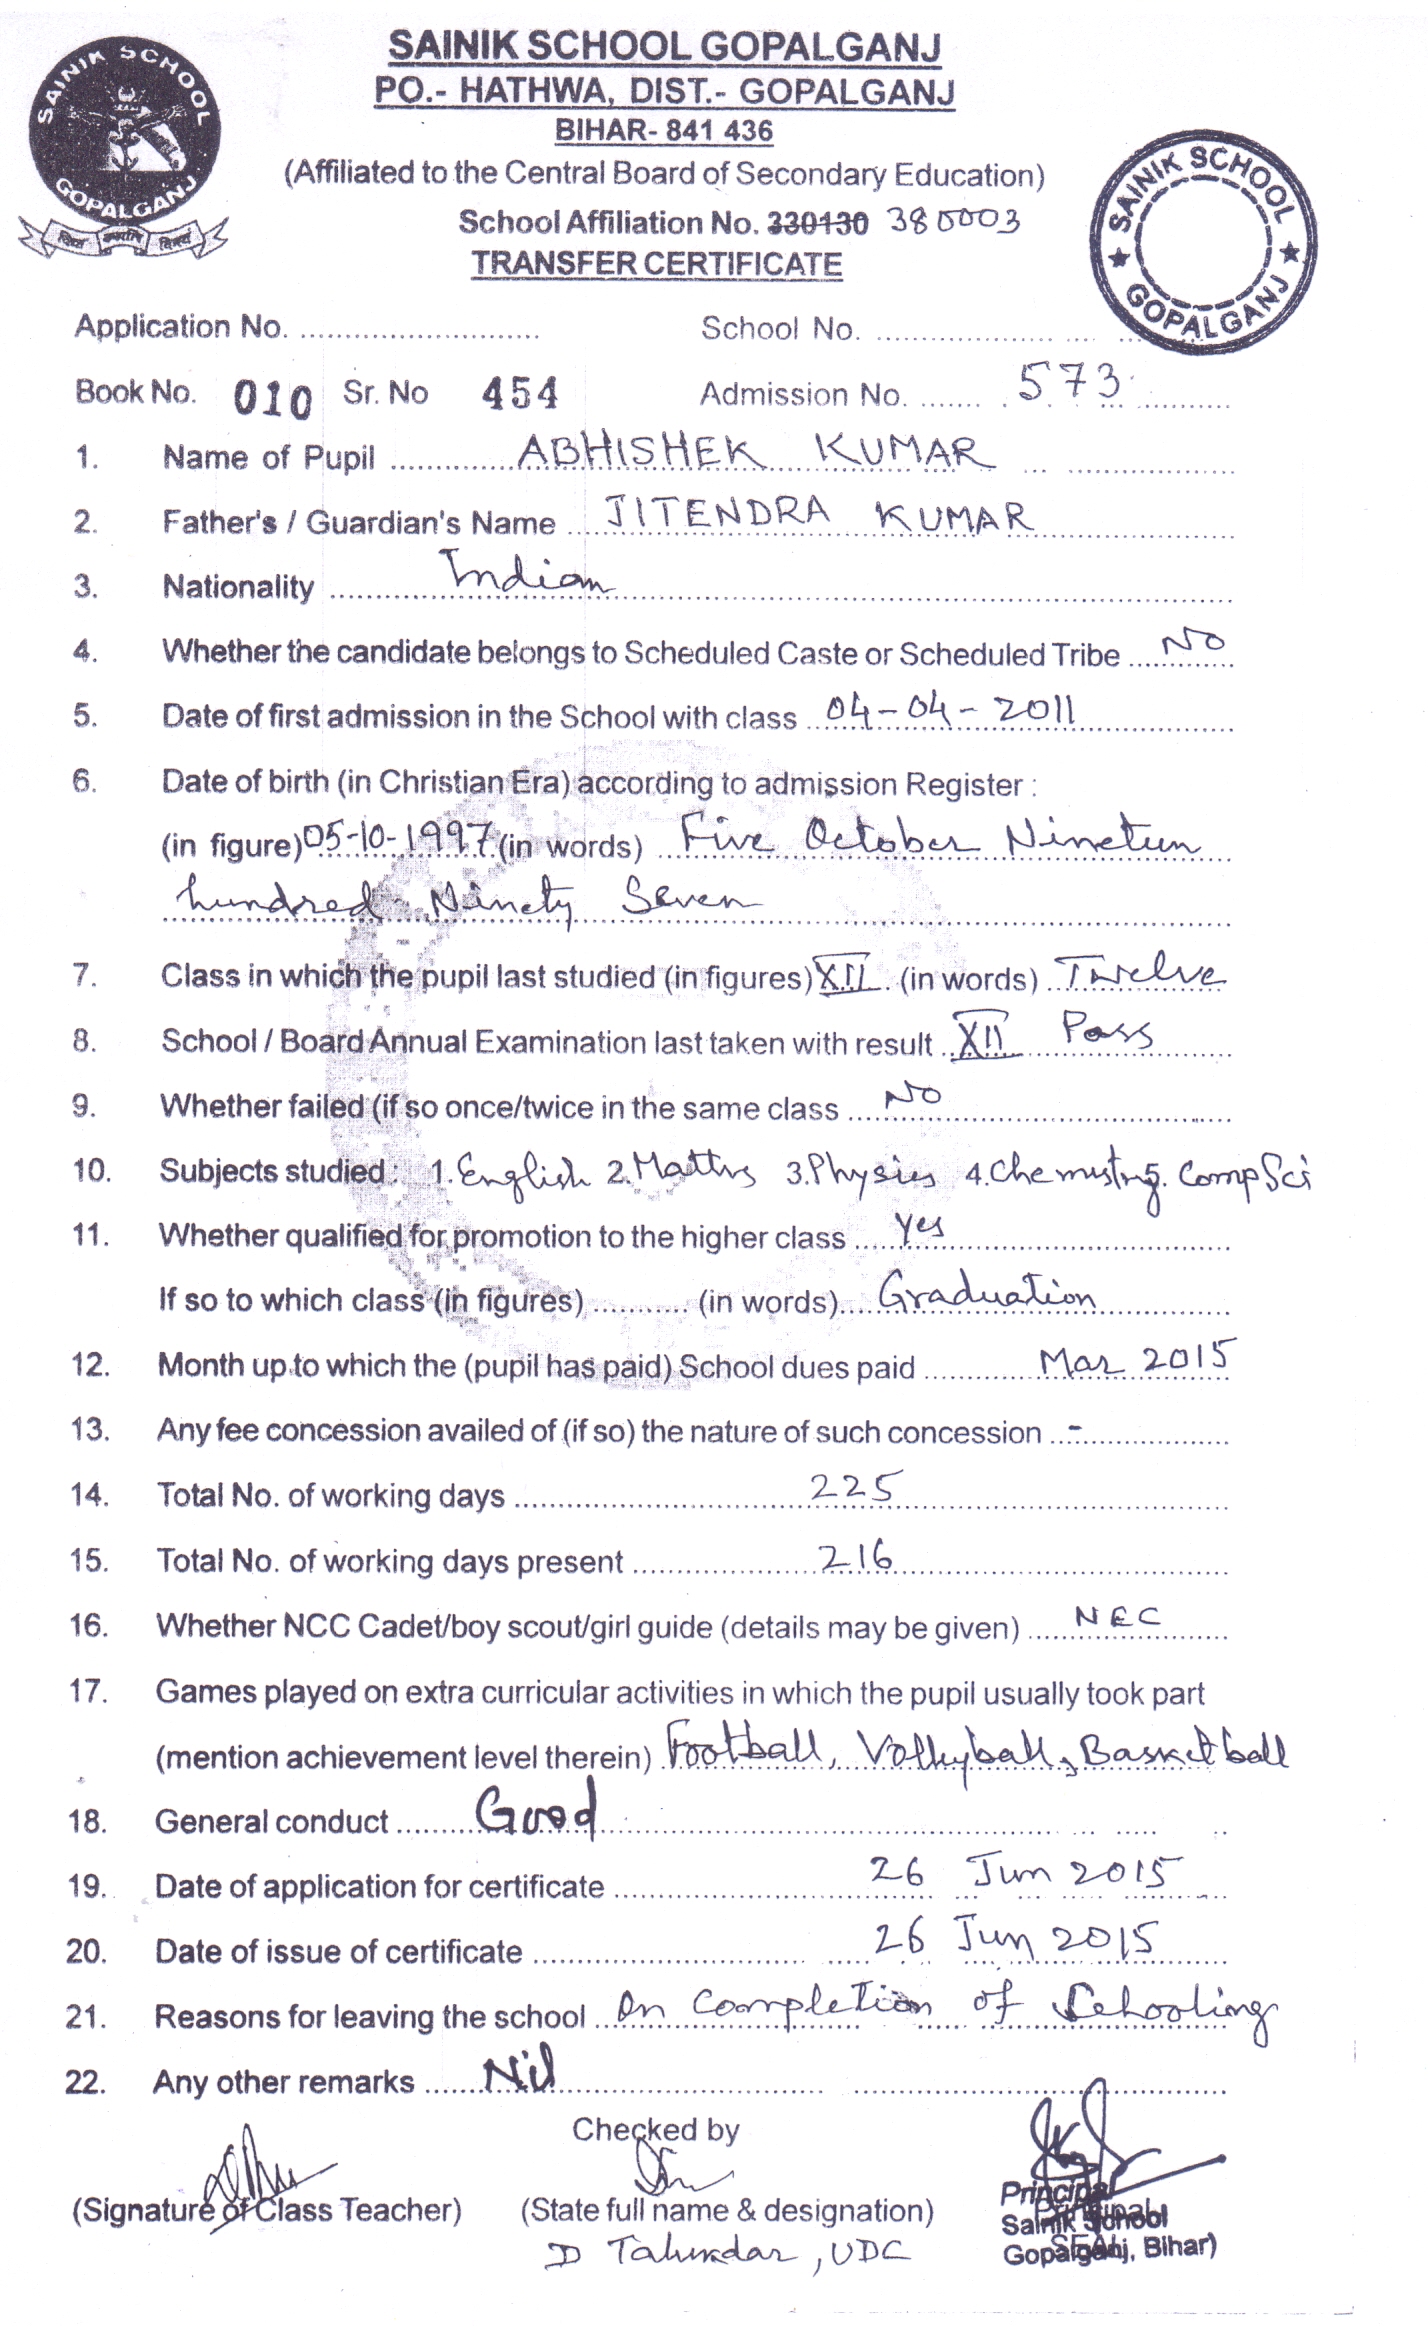 SAINIK SCHOOL GOPALGANJ
PO.- HATHWA, DIST.- GOPALGANJ
BIHAR- 841 436
(Affiliated to the Central Board of Secondary Education)
School Affiliation No. 330130 380003
TRANSFER CERTIFICATE
SAINIK SCHOOL
GOPALGANJ
SAINIK SCHOOL
GOPALGANJ
Application No. School No.
Book No. 010 Sr. No 454 Admission No. 573
1. Name of Pupil ABHISHEK KUMAR
2. Father's / Guardian's Name JITENDRA KUMAR
3. Nationality Indian
4. Whether the candidate belongs to Scheduled Caste or Scheduled Tribe No
5. Date of first admission in the School with class 04-04-2011
6. Date of birth (in Christian Era) according to admission Register :
(in figure) 05-10-1997 (in words) Five October Nineteen
hundred Ninety Seven
7. Class in which the pupil last studied (in figures) XII (in words) Twelve
8. School / Board Annual Examination last taken with result XII Pass
9. Whether failed (if so once/twice in the same class No
10. Subjects studied : 1. English 2. Maths 3. Physics 4. Chemistry 5. Comp Sci
11. Whether qualified for promotion to the higher class Yes
If so to which class (in figures) (in words) Graduation
12. Month up to which the (pupil has paid) School dues paid Mar 2015
13. Any fee concession availed of (if so) the nature of such concession -
14. Total No. of working days 225
15. Total No. of working days present 216
16. Whether NCC Cadet/boy scout/girl guide (details may be given) NCC
17. Games played on extra curricular activities in which the pupil usually took part
(mention achievement level therein) Football, Volleyball, Basketball
18. General conduct Good
19. Date of application for certificate 26 Jun 2015
20. Date of issue of certificate 26 Jun 2015
21. Reasons for leaving the school On Completion of Schooling
22. Any other remarks Nil
Checked by
(Signature of Class Teacher) (State full name & designation) Principal
D Talukdar, UDC
Principal
Sainik School
SEAL
Gopalganj, Bihar)